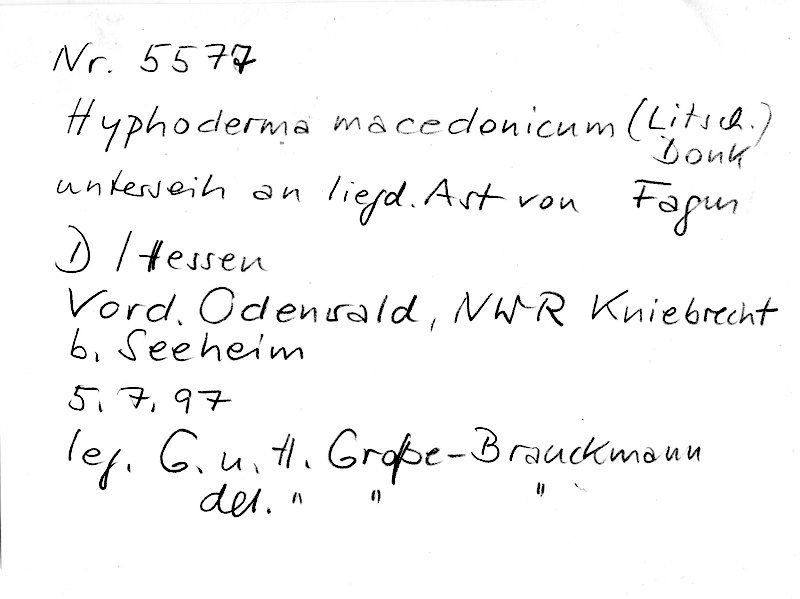 Nr. 5577
Hyphoderma macedonicum (Litsch.)
Donk
unterseits an liegd. Ast von Fagus
D / Hessen
Vord. Odenwald, NWR Kniebrecht
b. Seeheim
5. 7. 97
leg. G. u. H. Große-Brauckmann
det. " " "